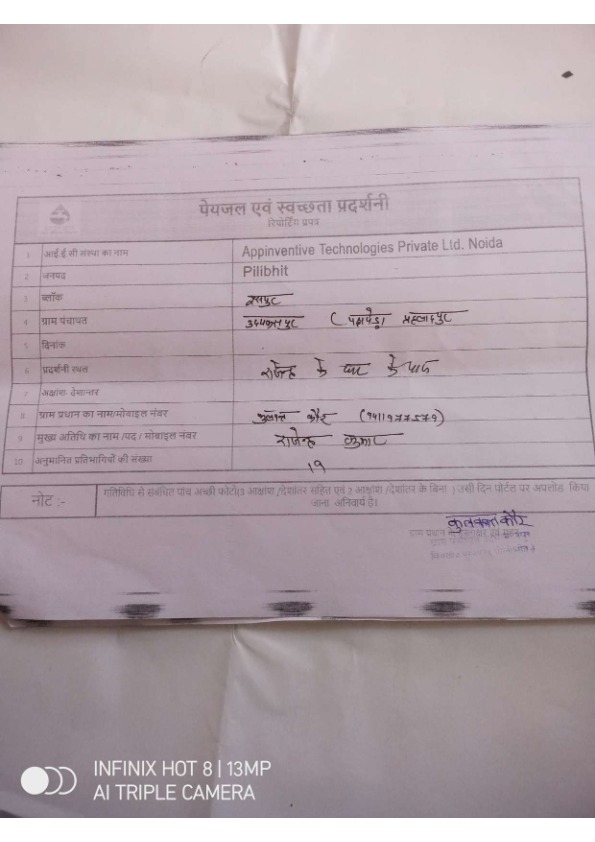 पेयजल एवं स्वच्छता प्रदर्शनी
रिपोर्टिंग प्रपत्र
1 आई.ई.सी संस्था का नाम Appinventive Technologies Private Ltd. Noida
2 जनपद Pilibhit
3 ब्लॉक
4 ग्राम पंचायत
5 दिनांक
6 प्रदर्शनी स्थल राजेन्द्र के घर के पास
7 अक्षांश/देशान्तर
8 ग्राम प्रधान का नाम/मोबाइल नंबर कौर
9 मुख्य अतिथि का नाम /पद / मोबाइल नंबर राजेन्द्र कुमार
10 अनुमानित प्रतिभागियों की संख्या 19
नोट :- गतिविधि से संबंधित पांच अच्छी फोटो(3 आक्षांश /देशांतर सहित एवं 2 आक्षांश /देशांतर के बिना ) उसी दिन पोर्टल पर अपलोड किया
जाना अनिवार्य है।
कुलवन्त कौर
ग्राम प्रधान के हस्ताक्षर एवं मुहर
INFINIX HOT 8 | 13MP
AI TRIPLE CAMERA